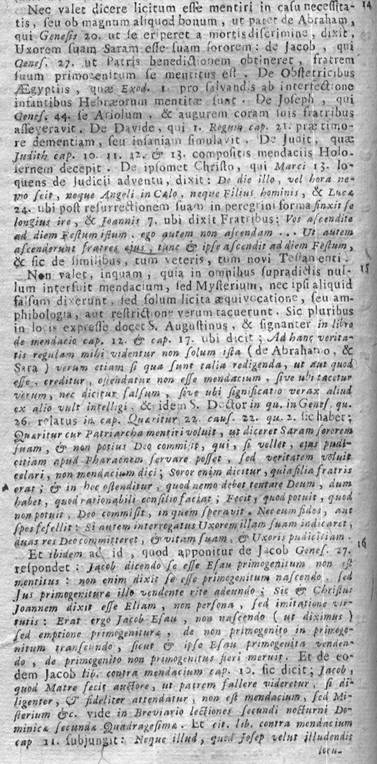 Nec valet dicere licitum esse mentiri in casu necessita- 14
tis, seu ob magnum aliquod bonum, ut patet de Abraham,
qui Genesis 20. ut se eriperet a mortis discrimine, dixit,
Uxorem suam Saram esse suam sororem: de Jacob, qui
Genes. 27. ut Patris benedictionem obtineret, fratrem
suum primogenitum se mentitus est. De Obstetricibus
Ægyptiis, quæ Exod. 1. pro salvandis ab interfectione
intantibus Hebræorum mentitæ sunt. De Joseph, qui
Genes. 44. se Ariolum, & augurem coram suis fratribus
asseveravit. De Davide, qui 1. Regum cap. 21. præ timo-
re dementiam, seu insaniam simulavit. De Judit, quæ
Judith cap. 10. 11. 12. & 13. compositis mendaciis Holo-
fernem decepit. De ipsomet Christo, qui Marci 13. lo-
quens de Judicii adventu, dixit: De die illo, vel hora ne-
mo scit, neque Angeli in Cælo, neque Filius hominis, & Lucæ
24. ubi post resurrectionem suam in peregrini forma finxit se
longius ire, & Joannis 7. ubi dixit Fratribus: Vos ascendite
ad diem Festum istum, ego autem non ascendam... Ut autem
ascenderunt fratres ejus, tunc & ipse ascendit ad diem Festum,
& sic de similibus, tum veteris, tum novi Testamenti.
Non valet, inquam, quia in omnibus supradictis nul- 15
lum interfuit mendacium, sed Mysterium, nec ipsi aliquid
falsum dixerunt, sed solum licita æquivocatione, seu am-
phibologia, aut restrictione verum tacuerunt. Sic pluribus
in locis expresse docet S. Augustinus, & signanter in libro
de mendacio cap. 12. & cap. 17. ubi dicit: Ad hanc verita-
tis regulam mihi videntur non solum ista (de Abrahamo, &
Sara) verum etiam si qua sunt talia redigenda, ut aut quod
esse, creditur, ostendatur non esse mendacium, sive ubi tacetur
verum, nec dicitur falsum, sive ubi significatio verax aliud
ex alio vult intelligi, & idem S. Doctor in qu. in Genes. qu.
26. relatus in cap. Quæritur 22. caus. 22. qu. 2. sic habet:
Quæritur cur Patriarcha mentiri voluit, ut diceret Saram sororem
suam, & non potius Deo commisit, qui, si vellet, ejus pudi-
citiam apud Pharaonem servare posset, sed veritatem voluit
celari, non mendacium dici; Soror enim dicitur, quia filia fratris
erat; & in hoc ostenditur, quod nemo debet tentare Deum, dum
habet, quod rationabili consilio faciat; Fecit, quod potuit, quod
non potuit, Deo commisit, in quem speravit. Nec eum fides, aut
spes fefellit: Si autem interrogatus Uxorem illam suam indicaret,
duas res Deo committeret, & vitam suam, & Uxoris pudicitiam.
Et ibidem ad id, quod apponitur de Jacob Genes. 27. 16
respondet: Jacob dicendo se esse Esau primogenitum non est
mentitus: non enim dixit se esse primogenitum nascendo, sed
Jus primogenituræ illo vendente rite adeundo; Sic & Christus
Joannem dixit esse Eliam, non persona, sed imitatione vir-
tutis: Erat ergo Jacob Esau, non nascendo (ut diximus)
sed emptione primogenituræ, de non primogenito in primoge-
nitum transeundo, sicut & ipse Esau primogenita venden-
do, de primogenito non primogenitus fieri meruit. Et de eo-
dem Jacob lib. contra mendacium cap. 10. sic dicit; Jacob,
quod Matre fecit auctore, ut patrem fallere videretur, si di-
ligenter, & fideliter attendatur, non est mendacium, sed Mi-
sterium &c. vide in Breviario lectiones secundi nocturni Do-
minicæ secundæ Quadragesimæ. Et cit. lib. contra mendacium
cap 11. subjungit: Neque illud, quod Josep velut illudendis
locu-